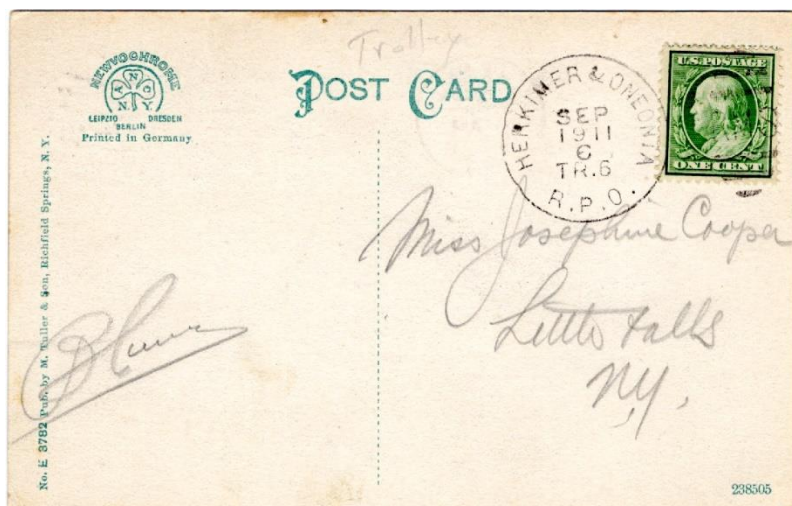 Trolley
NEWVOCHROME
A N C
N.Y.
LEIPZIG DRESDEN
BERLIN
Printed in Germany
POST CARD
HERKIMER & ONEONTA
SEP
1911
6
TR.6
R.P.O.
U.S. POSTAGE
ONE CENT
Miss Josephine Cooper
Little Falls
N.Y.
No. E 3782 Pub. by M. Tuller & Son, Richfield Springs, N. Y.
238505